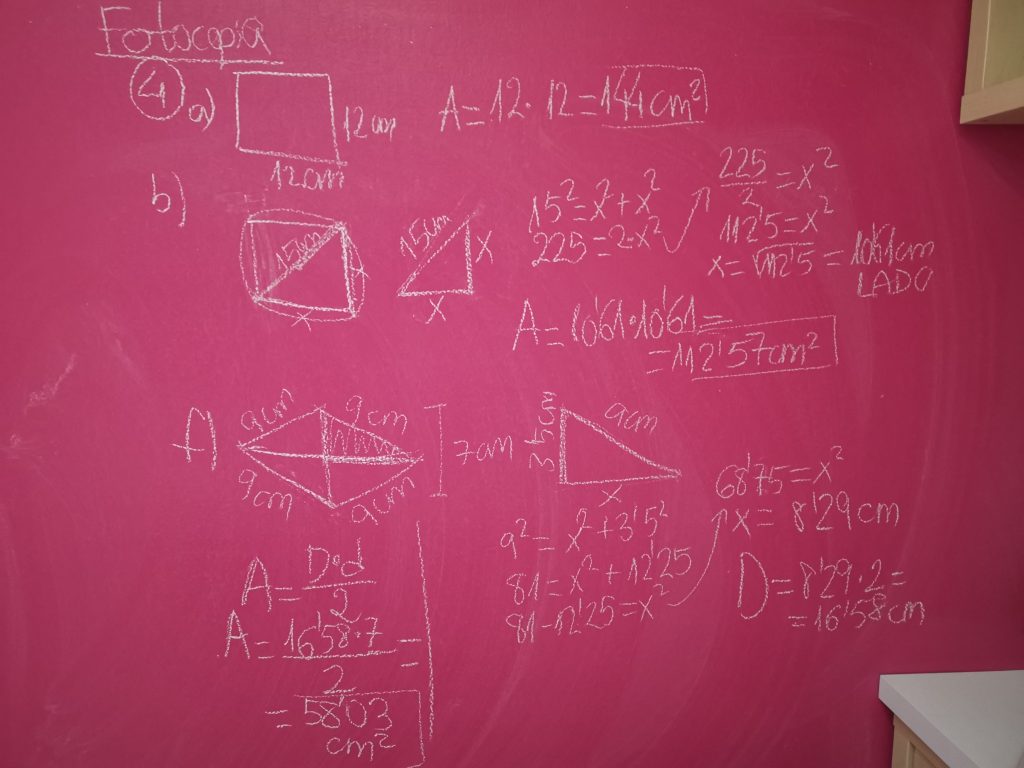 Fotocopia
4 a) 12cm A = 12 · 12 = 144 cm²
12cm
b) 15cm x
x
15cm x
x
15² = x² + x²
225 = 2·x²
225/2 = x²
112'5 = x²
x = √112'5 = 10'61cm
LADO
A = 10'61 · 10'61 =
= 112'57cm²
f) 9cm 9cm
9cm 9cm
7cm
3'5cm 9cm
x
9² = x² + 3'5²
81 = x² + 12'25
81 - 12'25 = x²
68'75 = x²
x = 8'29 cm
D = 8'29 · 2 =
= 16'58 cm
A = D·d/2
A = 16'58·7/2 =
= 58'03
cm²